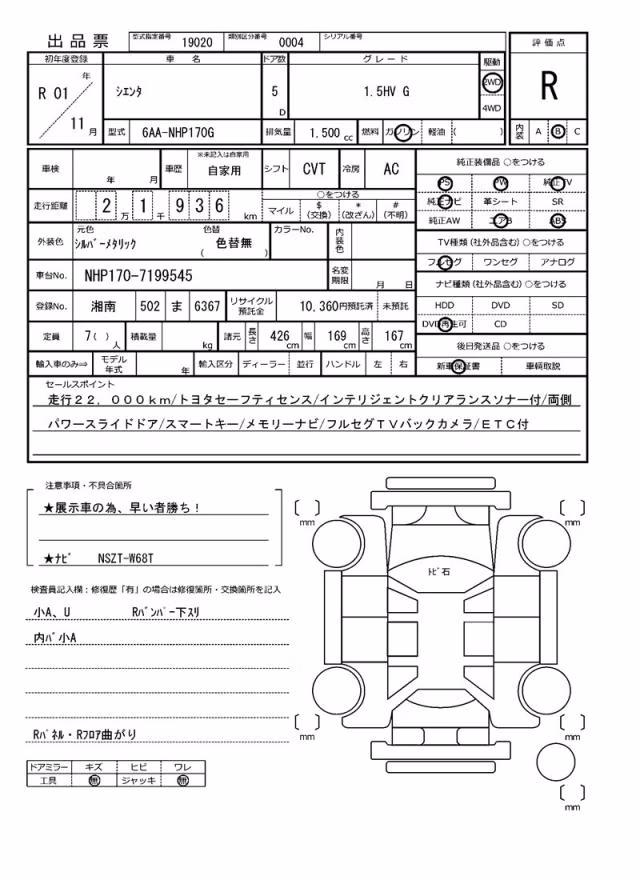 出品票 型式指定番号 19020 類別区分番号 0004 シリアル番号
評価点
R
初年度登録 車名 ドア数 グレード 駆動
R 01 年 11 月
シエンタ 5 D 1.5HV G 2WD 4WD
型式 6AA-NHP170G 排気量 1.500 cc 燃料 ガソリン 軽油 ( )
内装 A B C
車検 年 月 車歴 ※未記入は自家用 自家用 シフト CVT 冷房 AC
走行距離 2 万 1 千 9 3 6 km
○をつける
マイル $(交換) *(改ざん) #(不明)
外装色 元色 シルバーメタリック 色替 ( 色替無 ) カラーNo. 内装色
車台No. NHP170-7199545 名変期限 月 日
登録No. 湘南 502 ま 6367 リサイクル預託金 10,360円預託済 未預託
定員 7( ) 人 積載量 kg 諸元 長さ 426 cm 幅 169 cm 高さ 167 cm
輸入車のみ⇒ モデル年式 年 輸入区分 ディーラー 並行 ハンドル 左 右
純正装備品 ○をつける
PS PW 純正TV
純正ナビ 革シート SR
純正AW エアB ABS
TV種類(社外品含む) ○をつける
フルセグ ワンセグ アナログ
ナビ種類(社外品含む) ○をつける
HDD DVD SD
DVD再生可 CD
後日発送品 ○をつける
新車保証書 車輌取説
セールスポイント
走行22,000km/トヨタセーフティセンス/インテリジェントクリアランスソナー付/両側
パワースライドドア/スマートキー/メモリーナビ/フルセグTVバックカメラ/ETC付
注意事項・不具合箇所
★展示車の為、早い者勝ち!
★ナビ NSZT-W68T
検査員記入欄:修復歴「有」の場合は修復箇所・交換箇所を記入
小A、U Rバンパー下スリ
内バ小A
Rパネル・Rフロア曲がり
ドアミラー キズ ヒビ ワレ
工具 無 ジャッキ 無
トビ石
mm
mm
mm
mm
mm